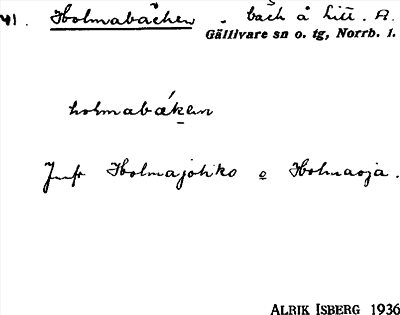 41. Holmabäcken . bäck å litt. A.
Gällivare sn o. tg, Norrb. l.
holmabäken
Jmfr Holmajohko o Holmaoja.
ALRIK ISBERG 1936